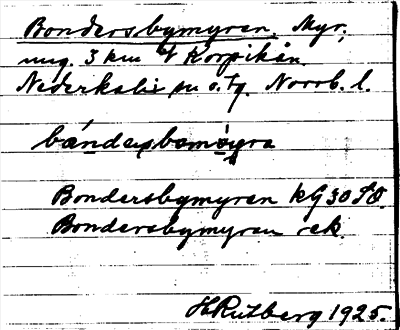 Bondersbymyren. Myr,
ung. 3 km V Korpikån.
Nederkalix sn o. tg. Norrb. l.
bóndersbomýra
Bondersbymyren kG 30 SO
Bondersbymyren rek.
H Rutberg 1925.